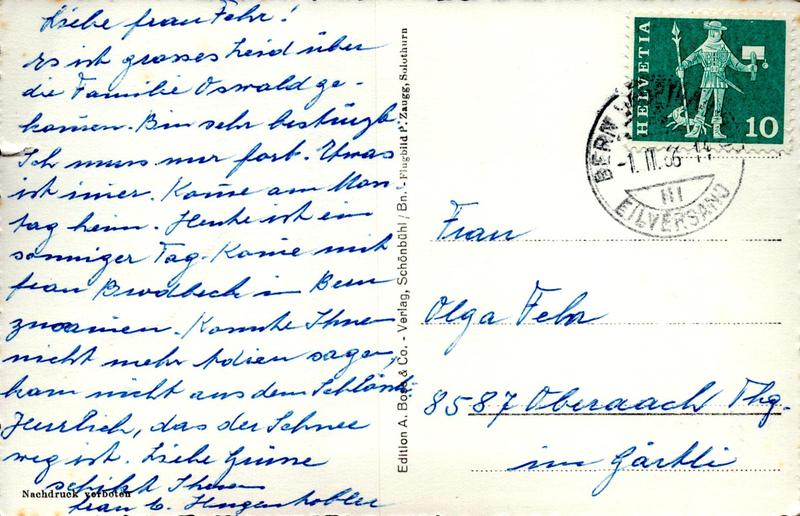 Liebe frau Fehr!
Es ist grosses Leid über
die Familie Oswald ge-
komen. Bin sehr bestürzt
Ich muss nur fort. Etwas
ist imer. Kome am Mon-
tag heim. Heute ist ein
sonniger Tag. Kome mit
frau Brodbeck in Bern
zusamen. Konnte Ihnen
nicht mehr Adieu sagen,
kam nicht aus dem
Herrlich, das der Schnee
weg ist. Liebe Grüsse
schickt Ihnen
frau E.
Nachdruck verboten
Edition A. Boss & Co. - Verlag, Schönbühl / Bn. - Flugbild P. Zaugg, Solothurn
HELVETIA
10
BERN
-1. III. 66-14
III
EILVERSAND
Frau
Olga Fehr
8587 Oberaach Thg.
im Gärtli